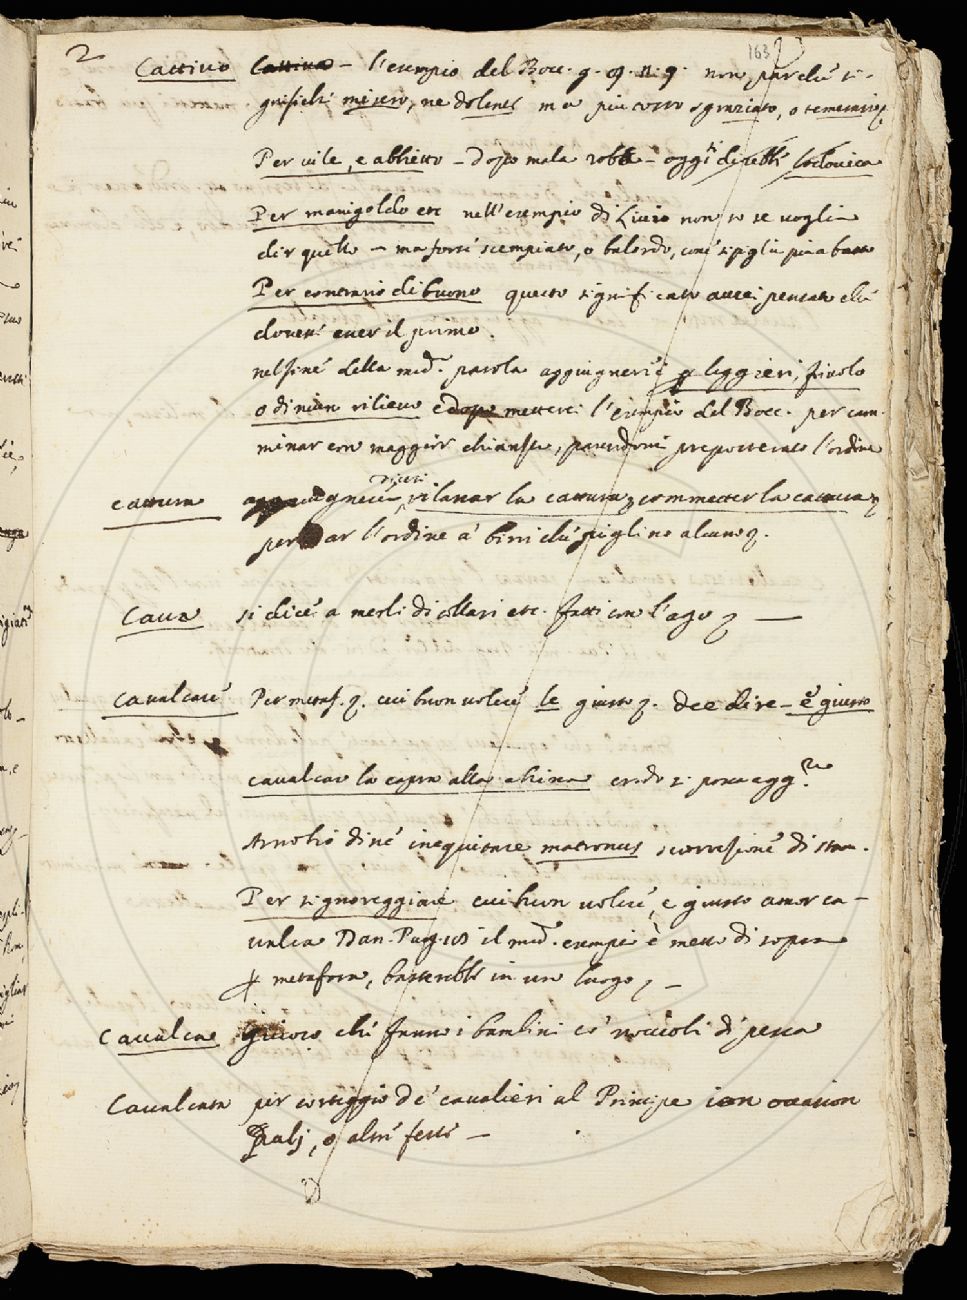 2
163
Cattivo Cattivo – l'esempio del Bocc. g. 9. n. 9. non par che si-
gnifichi misero, ne dolente ma più tosto sgraziato, o temerario
Per vile, e abbietto – dopo mala robba – oggi direbbesi
Per manigoldo etc nell'esempio di Livio non so se voglia
dir quello – ma forse scempiato, o balordo, come si piglia più a basso
Per contrario di buono questo significato avrei pensato che
dovesse esser il primo.
nel fine della med.ª parola aggiugnerei e p leggieri, frivolo
o di niun rilievo e dopo metterei l'esempio del Bocc. per cam-
minar con maggior chiarezza, parendomi l'ordine
cattura aggiugnerei rilassar la cattura, commetter la cattura
per dar l'ordine a' birri che piglino alcuno.
Cava si dice a merli di collari etc. fatti con l'ago
Cavalcare Per metaf. cui buon volere le giusto. dee dire – è giusto
cavalcar la capra alla china credo si possa agg.re
Arnobio dice inequitare matronas
Per signoreggiare cui buon volere, e giusto amor ca-
valca Dan. Purg. il med.º esempio è messo di sopra
p metafora, basterebbe in un luogo
Cavalca giuoco che fanno i bambini co' noccioli di pesca
Cavalcata per corteggio de' cavalieri al Principe con occasion
Palj, o altre feste –